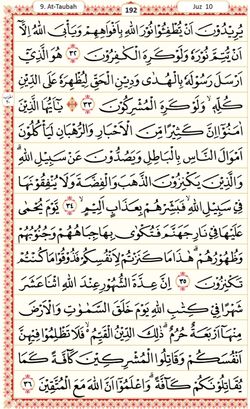 9. At-Taubah 192 Juz 10
يُرِيْدُوْنَ اَنْ يُّطْفِـُٔوْا نُوْرَ اللّٰهِ بِاَفْوَاهِهِمْ وَيَأْبَى اللّٰهُ اِلَّآ
اَنْ يُّتِمَّ نُوْرَهٗ وَلَوْ كَرِهَ الْكٰفِرُوْنَ ٣٢ هُوَ الَّذِيْٓ
اَرْسَلَ رَسُوْلَهٗ بِالْهُدٰى وَدِيْنِ الْحَقِّ لِيُظْهِرَهٗ عَلَى الدِّيْنِ
كُلِّهٖ وَلَوْ كَرِهَ الْمُشْرِكُوْنَ ٣٣ يٰٓاَيُّهَا الَّذِيْنَ
اٰمَنُوْٓا اِنَّ كَثِيْرًا مِّنَ الْاَحْبَارِ وَالرُّهْبَانِ لَيَأْكُلُوْنَ
اَمْوَالَ النَّاسِ بِالْبَاطِلِ وَيَصُدُّوْنَ عَنْ سَبِيْلِ اللّٰهِ
وَالَّذِيْنَ يَكْنِزُوْنَ الذَّهَبَ وَالْفِضَّةَ وَلَا يُنْفِقُوْنَهَا
فِيْ سَبِيْلِ اللّٰهِ فَبَشِّرْهُمْ بِعَذَابٍ اَلِيْمٍ ٣٤ يَّوْمَ يُحْمٰى
عَلَيْهَا فِيْ نَارِ جَهَنَّمَ فَتُكْوٰى بِهَا جِبَاهُهُمْ وَجُنُوْبُهُمْ
وَظُهُوْرُهُمْ هٰذَا مَا كَنَزْتُمْ لِاَنْفُسِكُمْ فَذُوْقُوْا مَا كُنْتُمْ
تَكْنِزُوْنَ ٣٥ اِنَّ عِدَّةَ الشُّهُوْرِ عِنْدَ اللّٰهِ اثْنَا عَشَرَ
شَهْرًا فِيْ كِتٰبِ اللّٰهِ يَوْمَ خَلَقَ السَّمٰوٰتِ وَالْاَرْضَ
مِنْهَآ اَرْبَعَةٌ حُرُمٌ ذٰلِكَ الدِّيْنُ الْقَيِّمُ فَلَا تَظْلِمُوْا فِيْهِنَّ
اَنْفُسَكُمْ وَقَاتِلُوا الْمُشْرِكِيْنَ كَاۤفَّةً كَمَا
يُقَاتِلُوْنَكُمْ كَاۤفَّةً وَاعْلَمُوْٓا اَنَّ اللّٰهَ مَعَ الْمُتَّقِيْنَ ٣٦